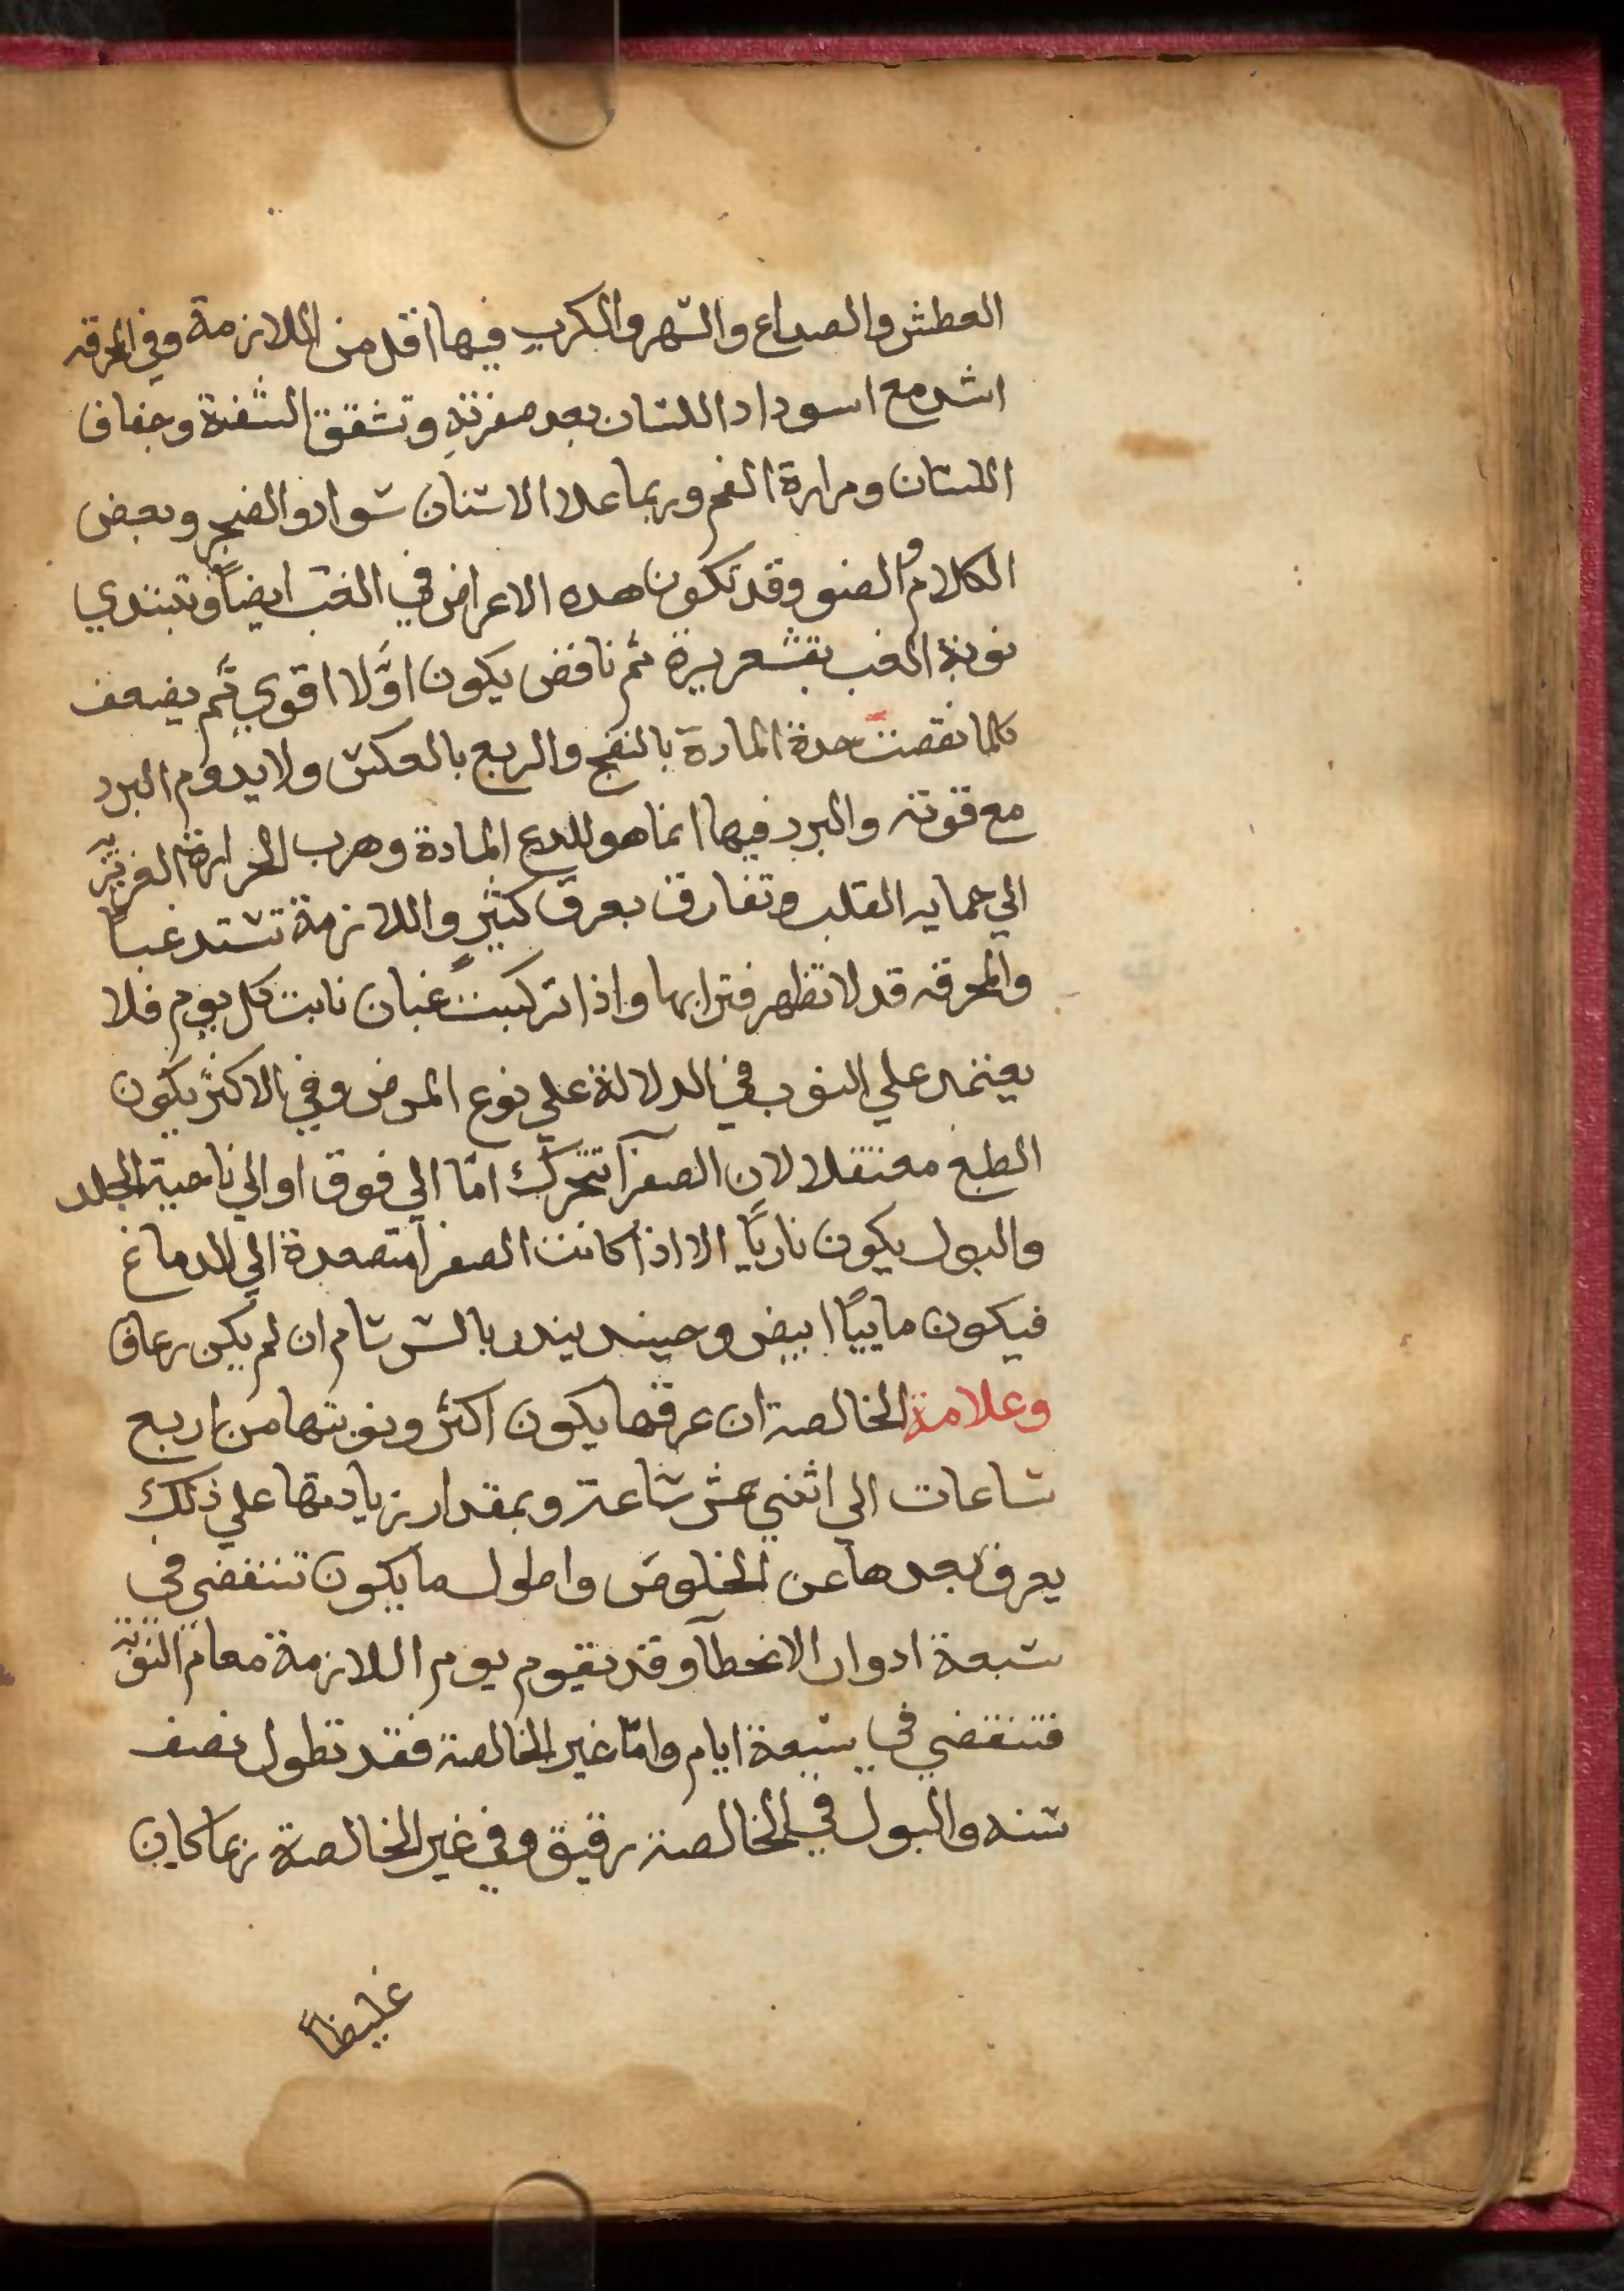 العطش والصداع والسهر والكرب فيها اقل من اللازمة وفي المحرقه
اشد مع اسوداد اللسان بعد صفرته وتشقق الشفة وجفاف
اللسان ومرارة الفم وربما علا الاسنان سواد والضجر وبعض
الكلام والضو وقد تكون هده الاعراض في الغب ايضاً وتبتدي
نوبة الغب بقشعريرة ثم نافض يكون اوّلا اقوي ثم يضعف
كلما نقصت حدة المادة بالنضج والربع بالعكس ولا يدوم البرد
مع قوته والبرد فيها انما هو للدع المادة وهرب الحرارة الغريزية
الي حمايه القلب وتفارق بعرق كثير واللازمة تشتد غباً
والمحرقه قد لا تظهر فتراتها واذا تركبت غبان نابت كل يوم فلا
يعتمد علي النوب في الدلالة علي نوع المرض وفي الاكثر يكون
الطبع معتقلا لان الصفرآ تتحرك امّا الي فوق او الي ناحية الجلد
والبول يكون ناريًا الا اذا كانت الصفرآ متصعدة الي الدماغ
فيكون ماييًا ابيض وحينيد يندر بالسرسام ان لم يكن رعاف
وعلامة الخالصة ان عرقها يكون اكثر ونوبتها من اربع
ساعات الي اثني عشر ساعة وبمقدار زيادتها علي ذلك
يعرف بعدها عن الخلوص واطول ما يكون تنقضي في
سبعة ادوار الا لخطآ وقد يقوم يوم اللازمة مقام النوبة
فتنقضي في سبعة ايام وامّا غير الخالصة فقد تطول نصف
سنه والبول في الخالصة رقيق وفي غير الخالصة ربما كان
غليظاً